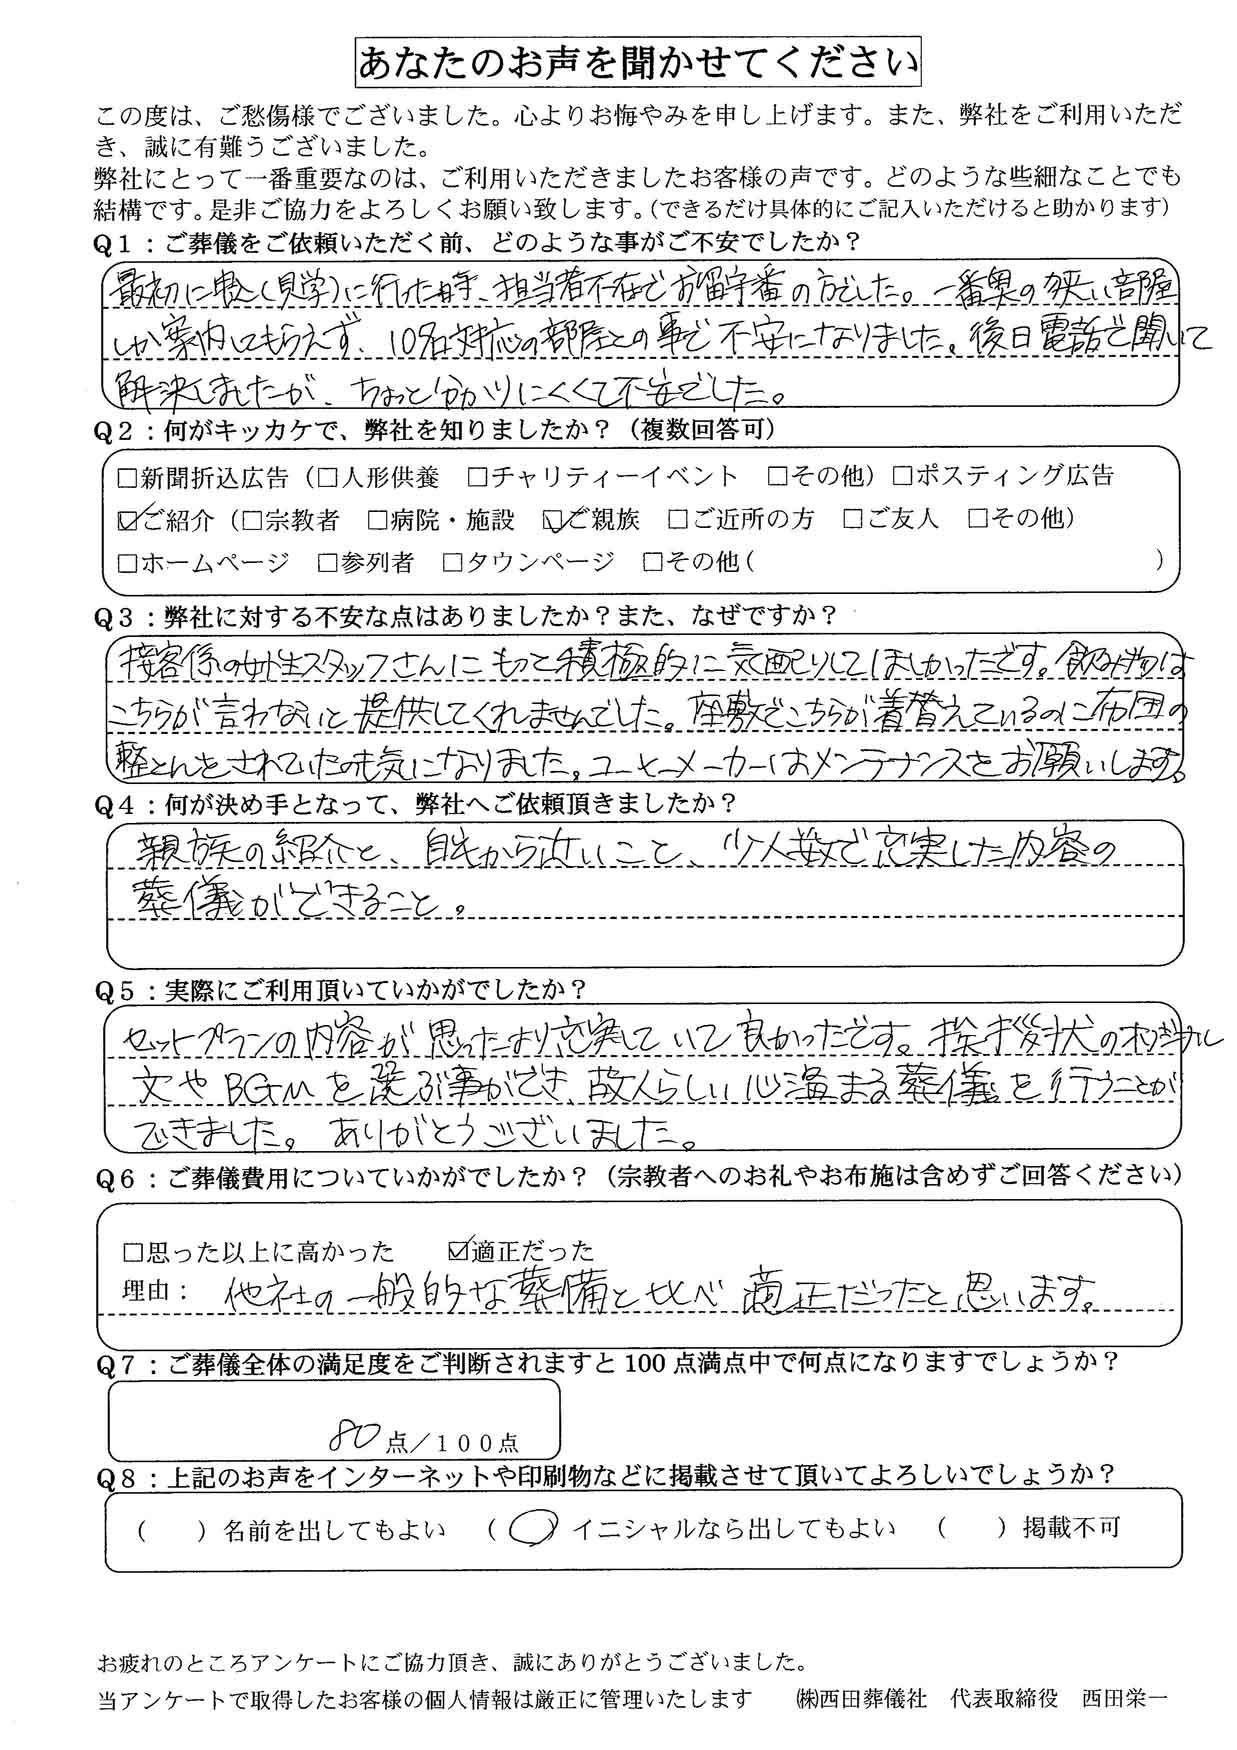 あなたのお声を聞かせてください
この度は、ご愁傷様でございました。心よりお悔やみを申し上げます。また、弊社をご利用いただ
き、誠に有難うございました。
弊社にとって一番重要なのは、ご利用いただきましたお客様の声です。どのような些細なことでも
結構です。是非ご協力をよろしくお願い致します。（できるだけ具体的にご記入いただけると助かります）
Q１：ご葬儀をご依頼いただく前、どのような事がご不安でしたか？
最初に申込（見学）に行った時、担当者不在でお留守番の方でした。一番奥の狭い部屋
しか案内してもらえず、10名対応の部屋との事で不安になりました。後日電話で聞いて
解決しましたが、ちょっと分かりにくくて不安でした。
Q２：何がキッカケで、弊社を知りましたか？（複数回答可）
□新聞折込広告（□人形供養　□チャリティーイベント　□その他）□ポスティング広告
☑ご紹介（□宗教者　□病院・施設　☑ご親族　□ご近所の方　□ご友人　□その他）
□ホームページ　□参列者　□タウンページ　□その他（　　　　　）
Q３：弊社に対する不安な点はありましたか？また、なぜですか？
接客係の女性スタッフさんにもっと積極的に気配りしてほしかったです。飲み物は
こちらが言わないと提供してくれませんでした。座敷でこちらが着替えているのに布団の
整とんをされていたのも気になりました。コーヒーメーカーはメンテナンスをお願いします。
Q４：何が決め手となって、弊社へご依頼頂きましたか？
親族の紹介と、自宅から近いこと、少人数で充実した内容の
葬儀ができること。
Q５：実際にご利用頂いていかがでしたか？
セットプランの内容が思ったより充実していて良かったです。挨拶状のオリジナル
文やBGMを選ぶ事ができ、故人らしい心温まる葬儀を行うことが
できました。ありがとうございました。
Q６：ご葬儀費用についていかがでしたか？（宗教者へのお礼やお布施は含めずご回答ください）
□思った以上に高かった　☑適正だった
理由：他社の一般的な葬儀と比べ適正だったと思います。
Q７：ご葬儀全体の満足度をご判断されますと100点満点中で何点になりますでしょうか？
80点／１００点
Q８：上記のお声をインターネットや印刷物などに掲載させて頂いてよろしいでしょうか？
（　　）名前を出してもよい　（○）イニシャルなら出してもよい　（　　）掲載不可
お疲れのところアンケートにご協力頂き、誠にありがとうございました。
当アンケートで取得したお客様の個人情報は厳正に管理いたします　㈱西田葬儀社　代表取締役　西田栄一